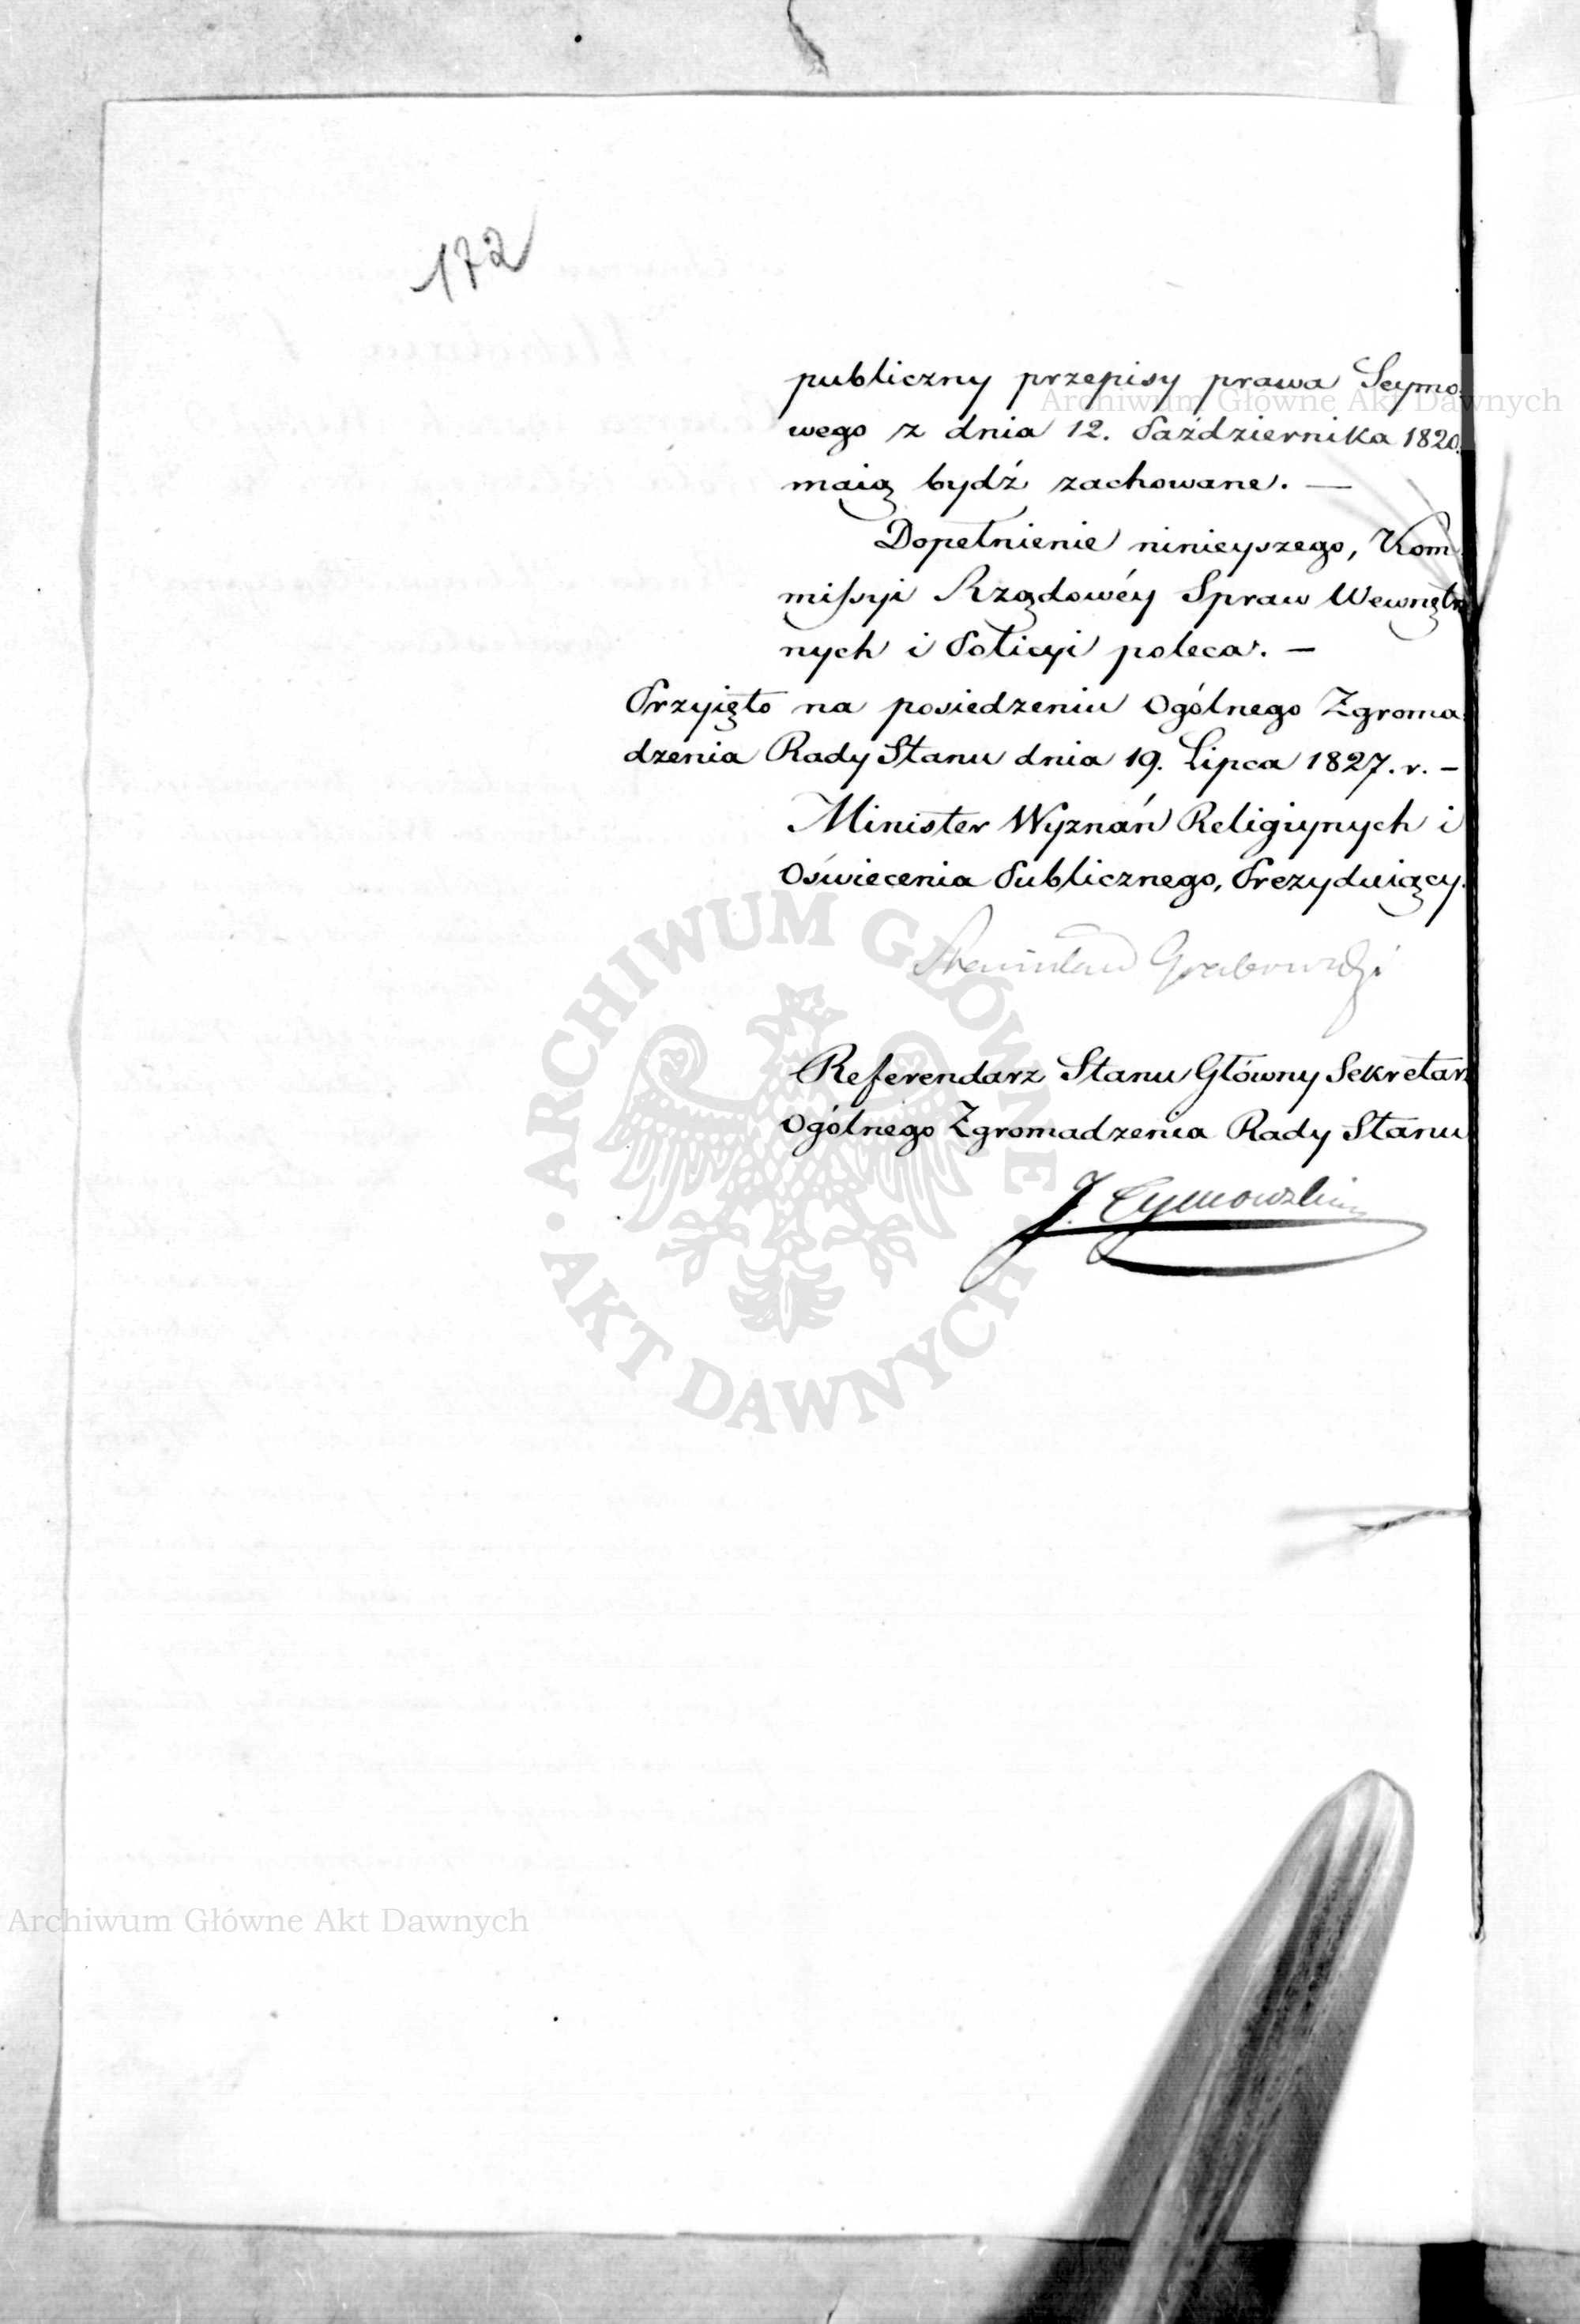 172
publiczny przepisy prawa Seymo
wego z dnia 12. Października 1820.
maią bydź zachowane. —
Dopełnienie ninieyszego, Kom
missyi Rządowéy Spraw Wewnętrz
nych i Policyi poleca. —
Przyięto na posiedzeniu Ogólnego Zgroma
dzenia Rady Stanu dnia 19. Lipca 1827. r. —
Minister Wyznań Religiynych i
Oświecenia Publicznego, Prezyduiący.
Stanisław Grabowski
Referendarz Stanu Główny Sekretarz
Ogólnego Zgromadzenia Rady Stanu
J. Tymowski
Archiwum Główne Akt Dawnych
ARCHIWUM GŁÓWNE · AKT DAWNYCH ·
Archiwum Główne Akt Dawnych